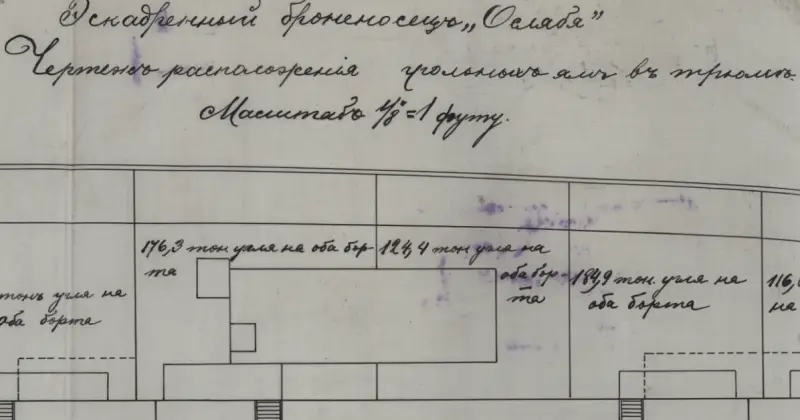 Эскадренный броненосецъ „Ослябя”
Чертежъ расположенія угольныхъ ямъ въ трюмѣ.
Масштабъ 1/8" = 1 футу.
176,3 тон угля на оба бор-
та
124,4 тон угля на
оба бор-
та
184,9 тон. угля на
оба борта
тонъ угля на
оба борта
116,
на